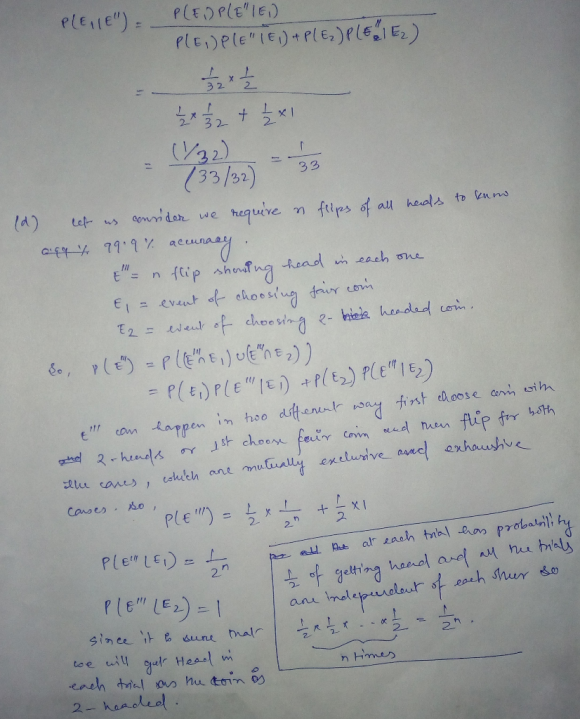 P(E₁|E'') = P(E₁)P(E''|E₁) / P(E₁)P(E''|E₁)+P(E₂)P(E''|E₂)
= 1/32 × 1/2 / 1/2 × 1/32 + 1/2 × 1
= (1/32) / (33/32) = 1/33
(d) let us consider we require n flips of all heads to know
99.9% accuracy.
E''' = n flip showing head in each one
E₁ = event of choosing fair coin
E₂ = event of choosing 2-headed coin.
So, P(E''') = P((E'''∩E₁)∪(E'''∩E₂))
= P(E₁)P(E'''|E₁) + P(E₂)P(E'''|E₂)
E''' can happen in two different way first choose coin with
2-heads or 1st choose fair coin and then flip for both
the cases, which are mutually exclusive and exhaustive
cases. so,
P(E''') = 1/2 × 1/2ⁿ + 1/2 × 1
P(E'''|E₁) = 1/2ⁿ
P(E'''|E₂) = 1
since it is sure that
we will get Head in
each trial as the coin is
2-headed.
at each trial has probability
1/2 of getting head and all the trials
are independent of each other so
1/2 × 1/2 × ... × 1/2 = 1/2ⁿ.
n times